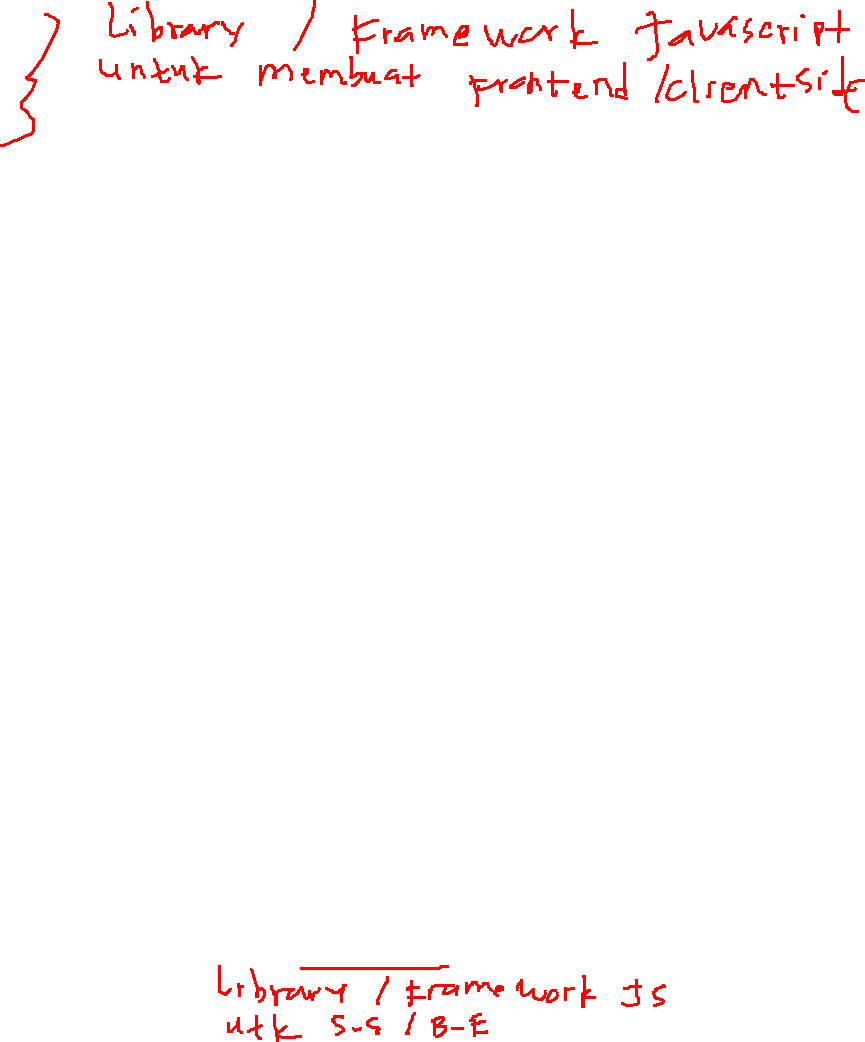 Library / Framework Javascript
untuk membuat Frontend /clientside
Library / Framework JS
utk S-S / B-E